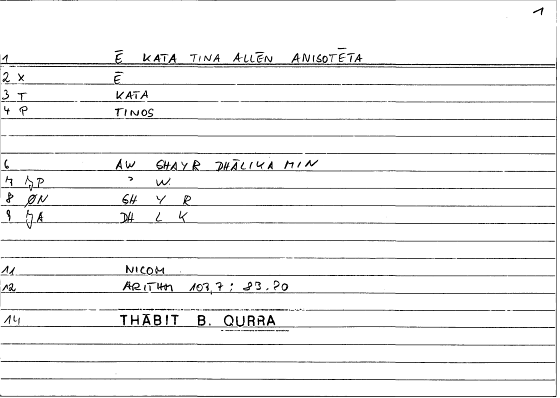 1
1 Ē KATA TINA ALLĒN ANISOTĒTA
2 X Ē
3 T KATA
4 P TINOS
6 AW GHAYR DHĀLIKA MIN
7 P ' W
8 ØN GH Y R
9 A DH L K
11 NICOM
12 ARITHM 103,7 : 83.20
14 THĀBIT B. QURRA